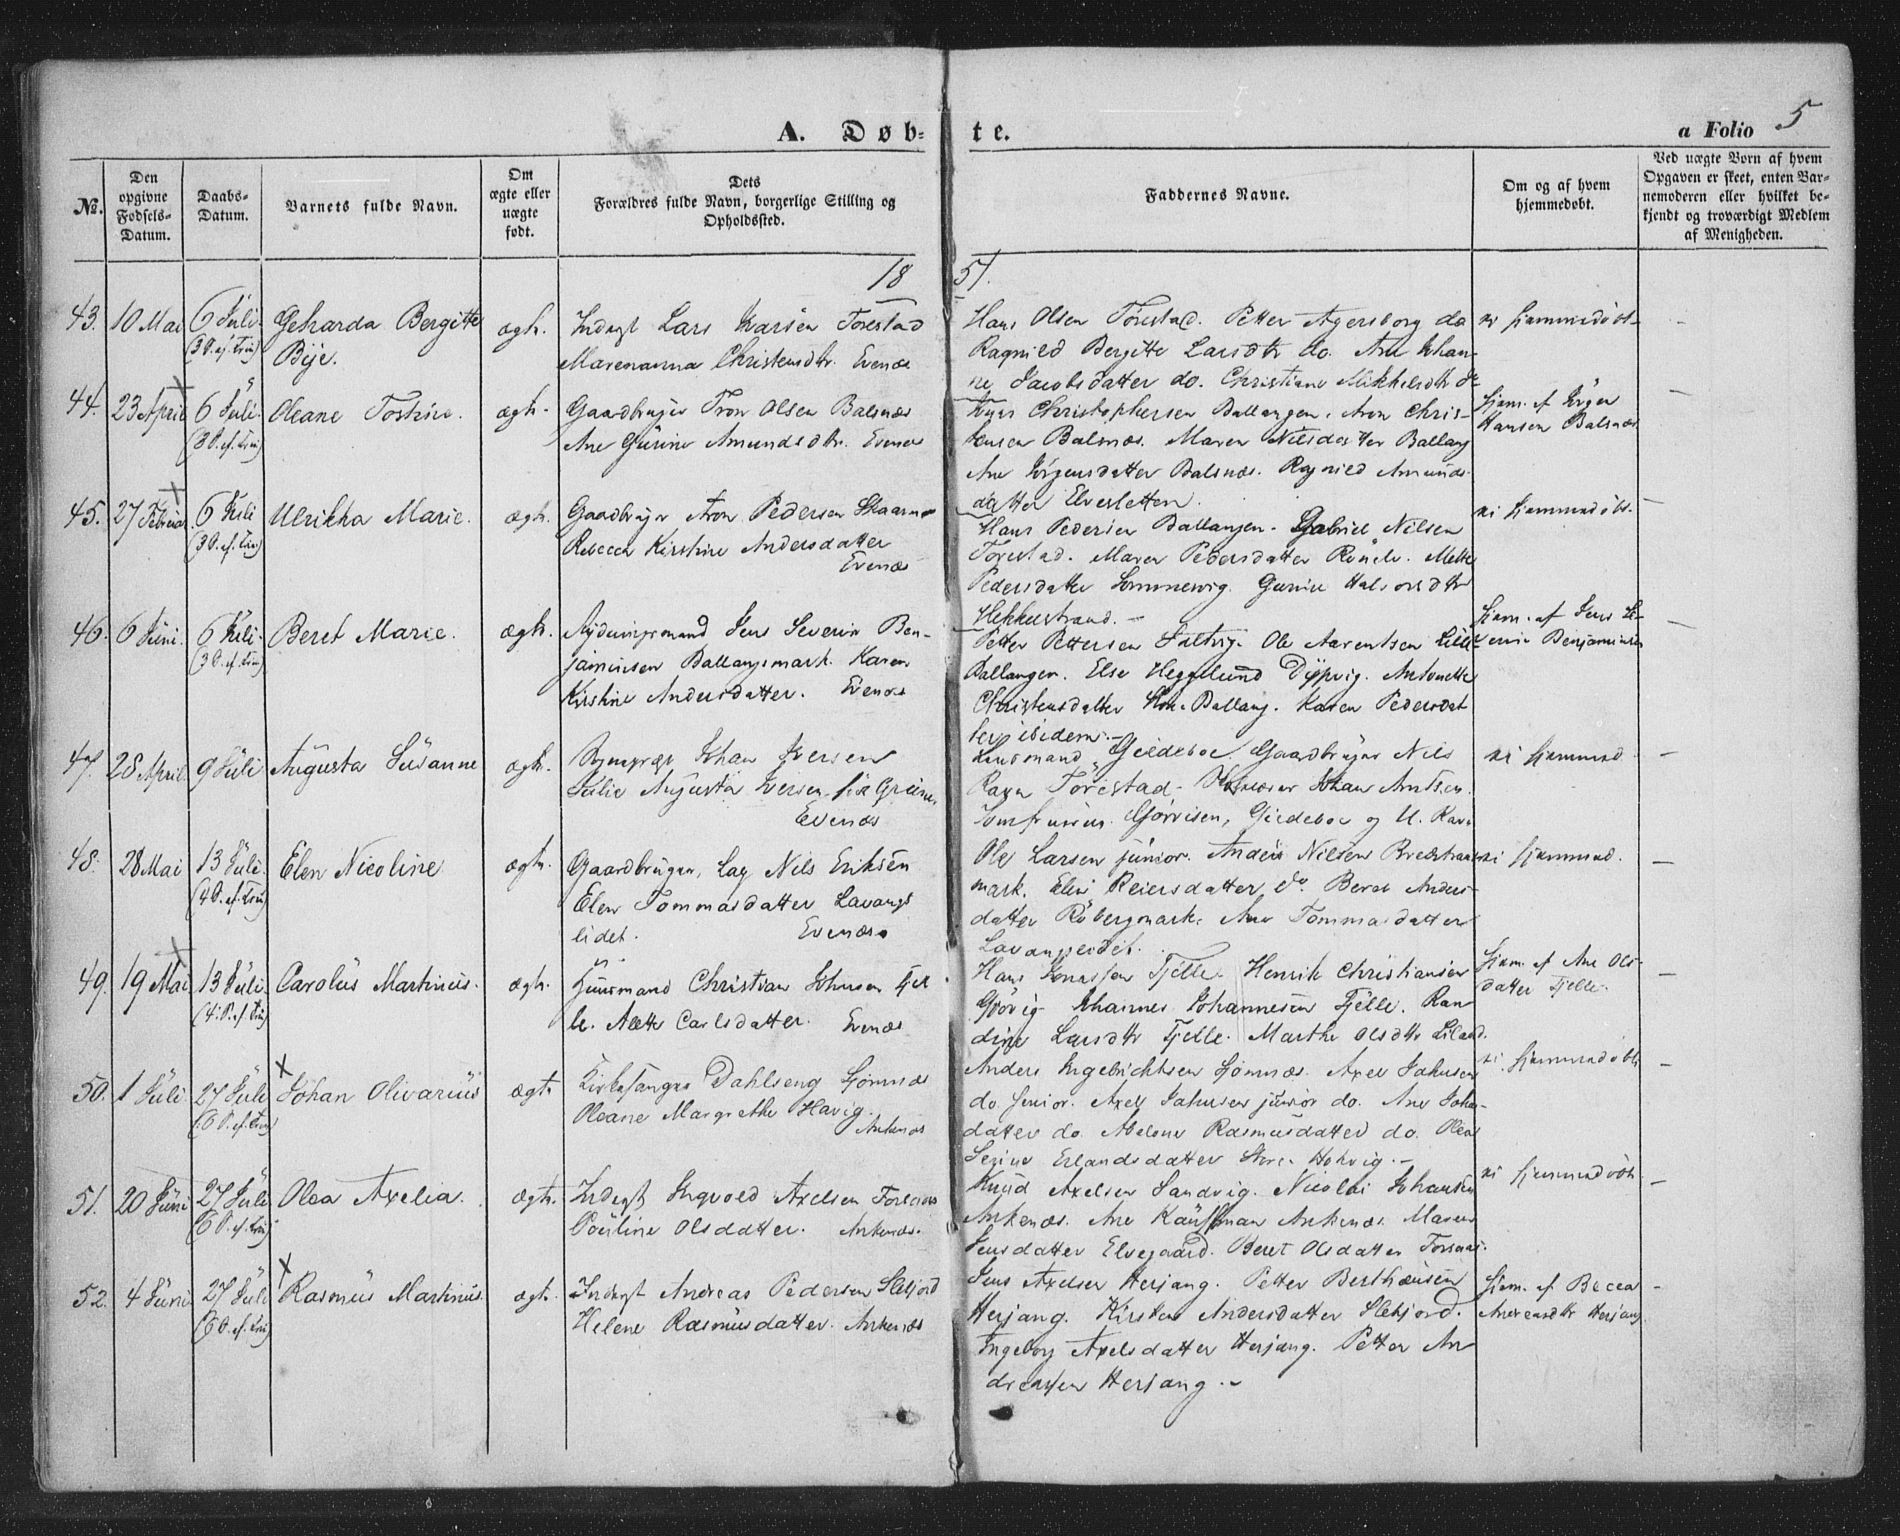 A. Døb- te. a Folio 5
№. Den opgivne Fødsels-Datum. Daabs-Datum. Barnets fulde Navn. Om ægte eller uægte født. Dets Forældres fulde Navn, borgerlige Stilling og Opholdssted. Faddernes Navne. Om og af hvem hjemmedøbt. Ved uægte Børn af hvem Opgaven er skeet, enten Barnemoderen eller hvilket bekjendt og troværdigt Medlem af Menigheden.
18 51.
43. 10 Mai 6 Juli (3 S. ef. Trin) Geharda Bergitte Bye. ægt. Inderst Lars Larsen Forestad
Marenanna Christensdtr. Evenæs
Hans Olsen Forestad. Petter Agersborg do
Ragnild Bergitte Larsdtr do. Ane Johan-
ne Jacobsdatter do. Christiane Mikkelsdtr do
ei hjemmedøbt
44. 23 April 6 Juli (3 S. ef. Trin) Oleane ægt. Gaardbruger Tron Olsen Balsnæs
Ane Gurine Amundsdtr. Evenæs
Christophersen Ballangen. Aron Chris-
tensen Balsnæs. Maren Nilsdatter Ballang
Ane Jørgensdatter Balsnæs. Ragnild Amunds-
datter Elvesletten.
hjem. af Jørgen
Hansen Balsnæs
45. 27 Februar 6 Juli (3 S. ef. Trin) Ulrikka Marie. ægt. Gaardbruger Aron Pedersen
Rebecca Kirstine Andersdatter
Evenæs
Hans Pedersen Ballangen. Gabriel Nilsen
Forestad. Maren Pedersdatter Mette
Pedersdatter Gurine Halvorsdtr
Hekkestrand.
ei hjemmedøbt.
46. 6 Juni. 6 Juli (3 S. ef. Trin) Beret Marie. ægt. Rydningsmand Jens Severin Ben-
jaminsen Ballangsmark. Karen
Kirstine Andersdatter. Evenæs
Petter Pettersen Saltvig. Ole Aarentsen Lille
Ballangen. Else Hegglund Dyppvig. Antonette
Christensdatter Ballang. Karen Pedersdat
ter ibidem.
hjem. af Jens Se-
verin Benjaminsen
47. 28 April 9 Juli Augusta Susanne ægt. Johan Iversen
Julie Augusta Iversen
Evenæs
Lensmand Gieldeboe. Gaardbruger Nils
Ravn Forestad. Johan Arntsen.
Jomfruerne Gieldeboe og U. Ravn
ei hjemmed.
48. 28 Mai 13 Juli (4 S. ef. Trin) Elen Nicoline ægt. Gaardbruger, Lap Nils Eriksen
Elen Tommasdatter Lavangs
eidet. Evenæs.
Ole Larsen junior. Anders Nilsen
mark. Elen Reiersdatter do. Beret Anders-
datter Røbergmark. Ane Tommasdatter
Lavangseidet.
ei hjemmed.
49. 19 Mai 13 Juli (4 S. ef. Trin) Carolus Martinus. ægt. Huusmand Christian Johnsen Fjel
le. Alette Carlsdatter. Evenæs
Hans Jonassen Fjelle. Henrik Christiansen
Johannes Johannesen Fjelle. Ran-
dine Larsdtr Fjelle. Marthe Olsdtr Liland.
hjem. af Ane Ols-
datter Fjelle.
50. 1 Juli 27 Juli (6 S. ef. Trin) Johan Olivarius ægt. Kirkesanger Dahlseng
Oleane Margrethe Havig.
Ankenæs
Anders Ingebrichtsen Axel Jakobsen
do senior. Axel Jakobsen junior do. Ane
datter do. Abelone Rasmusdatter do. Olea
Serine Erlandsdatter
ei hjemmedøbt
51. 20 Juni 27 Juli (6 S. ef. Trin) Olea Axelia. ægt. Inderst Ingvold Axelsen
Pouline Olsdatter. Ankenæs.
Knud Axelsen Sandvig. Nicolai Johansen
Ankenæs. Ane Kauffman Ankenæs. Maren
Jensdatter Elvegaard. Beret Olsdatter
ei hjemmedøbt
52. 4 Juni 27 Juli (6 S. ef. Trin) Rasmus Martinus. ægt. Inderst Andreas Pedersen Slebjord
Helene Rasmusdatter. Ankenæs
Jens Axelsen Herjang. Petter Berthæusen
Herjang. Kirsten Andersdatter Slebjord.
Ingeborg Axelsdatter Herjang. Petter An
dreassen Herjang.
hjem. af Becca
Andreasdtr Herjang